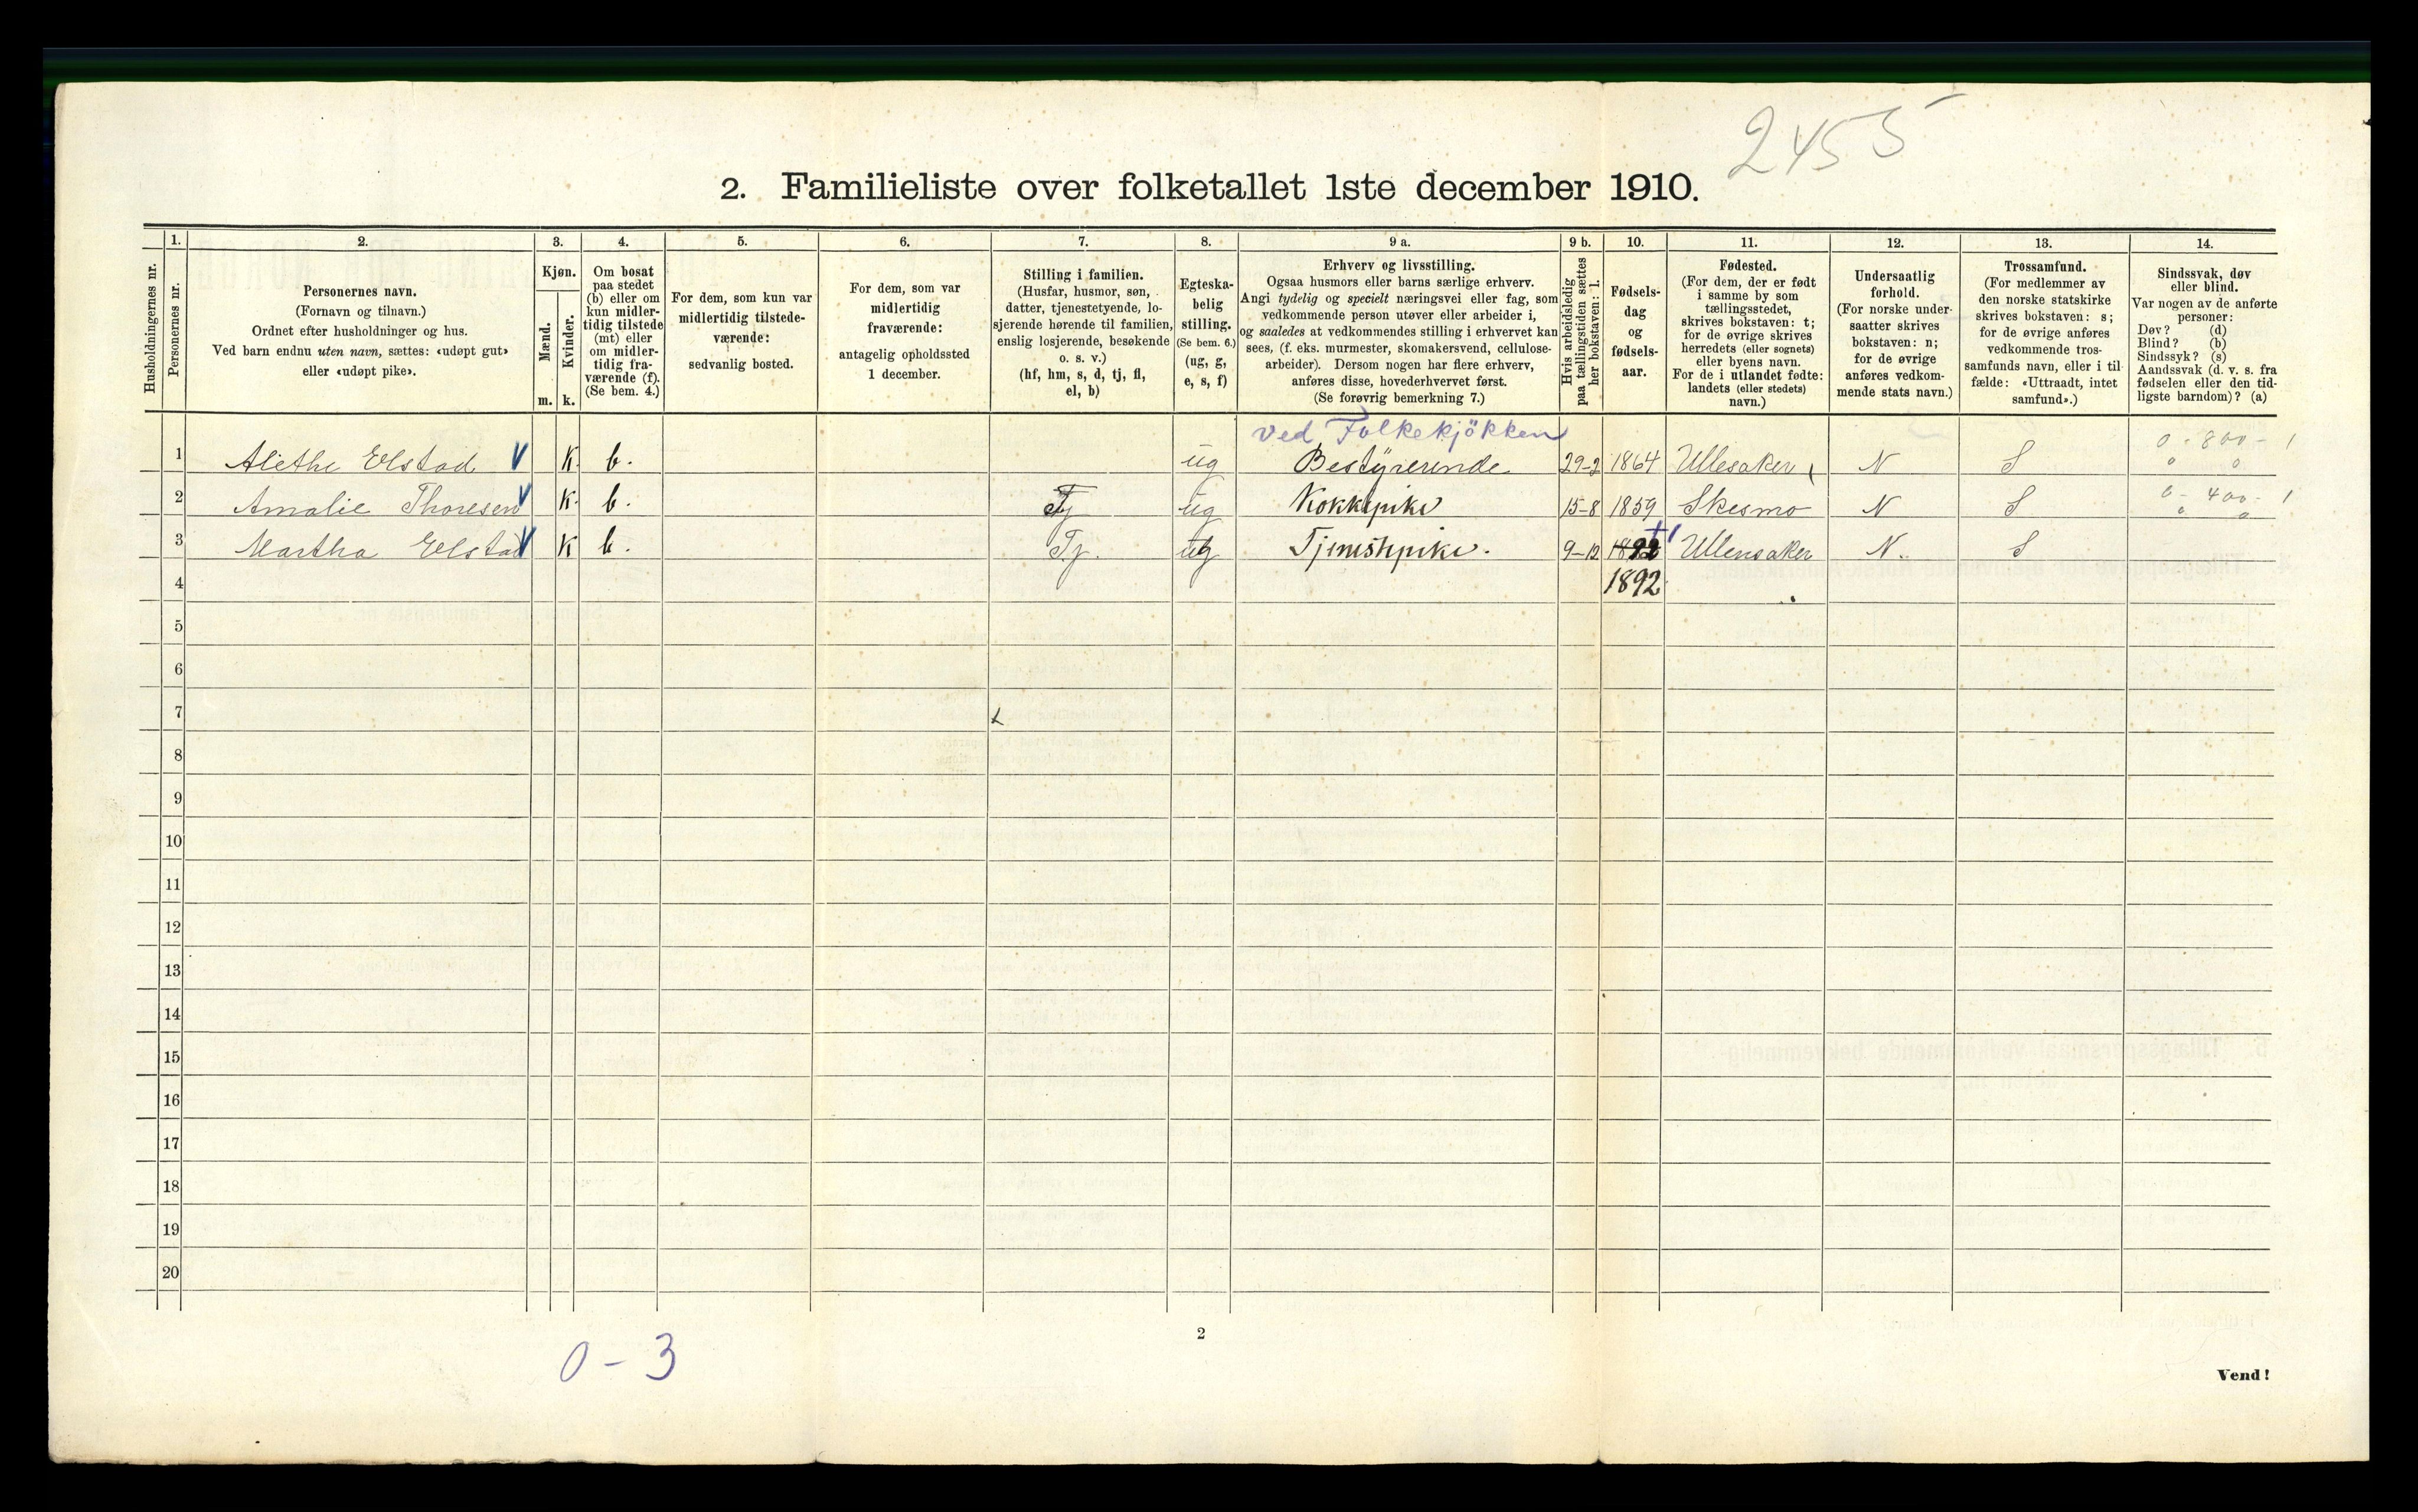 2455
2. Familieliste over folketallet 1ste december 1910.
Husholdningernes nr.
1.
Personernes nr.
2.
Personernes navn.
(Fornavn og tilnavn.)
Ordnet efter husholdninger og hus.
Ved barn endnu uten navn, sættes: «udøpt gut»
eller «udøpt pike».
3.
Kjøn.
Mænd.
Kvinder.
m. k.
4.
Om bosat
paa stedet
(b) eller om
kun midler-
tidig tilstede
(mt) eller
om midler-
tidig fra-
værende (f).
(Se bem. 4.)
5.
For dem, som kun var
midlertidig tilstede-
værende:
sedvanlig bosted.
6.
For dem, som var
midlertidig
fraværende:
antagelig opholdssted
1 december.
7.
Stilling i familien.
(Husfar, husmor, søn,
datter, tjenestetyende, lo-
sjerende hørende til familien,
enslig losjerende, besøkende
o. s. v.)
(hf, hm, s, d, tj, fl,
el, b)
8.
Egteska-
belig
stilling.
(Se bem. 6.)
(ug, g,
e, s, f)
9 a.
Erhverv og livsstilling.
Ogsaa husmors eller barns særlige erhverv.
Angi tydelig og specielt næringsvei eller fag, som
vedkommende person utøver eller arbeider i,
og saaledes at vedkommendes stilling i erhvervet kan
sees, (f. eks. murmester, skomakersvend, cellulose-
arbeider). Dersom nogen har flere erhverv,
anføres disse, hovederhvervet først.
(Se forøvrig bemerkning 7.)
9 b.
Hvis arbeidsledig
paa tællingstiden sættes
her bokstaven: l.
10.
Fødsels-
dag
og
fødsels-
aar.
11.
Fødested.
(For dem, der er født
i samme by som
tællingsstedet,
skrives bokstaven: t;
for de øvrige skrives
herredets (eller sognets)
eller byens navn.
For de i utlandet fødte:
landets (eller stedets)
navn.)
12.
Undersaatlig
forhold.
(For norske under-
saatter skrives
bokstaven: n;
for de øvrige
anføres vedkom-
mende stats navn.)
13.
Trossamfund.
(For medlemmer av
den norske statskirke
skrives bokstaven: s;
for de øvrige anføres
vedkommende tros-
samfunds navn, eller i til-
fælde: «Uttraadt, intet
samfund».)
14.
Sindssvak, døv
eller blind.
Var nogen av de anførte
personer:
Døv? (d)
Blind? (b)
Sindssyk? (s)
Aandssvak (d. v. s. fra
fødselen eller den tid-
ligste barndom)? (a)
ved Folkekjökken
0 - 800 - 1
1 Alethe Elstad V K. b. ug Bestyrerende 29-2 1864 Ullesaker N S
0 - 400 - 1
2 Amalie Thoresen V K. b. Tj ug Kokkepike 15-8 1859 Skesmo N S
3 Martha Elstad V K b. Tj. ug Tjenestepike. 9-12 1892 Ullensaker N. S
4 1892
5
6
7
8
9
10
11
12
13
14
15
16
17
18
19
20
0 - 3
2
Vend!